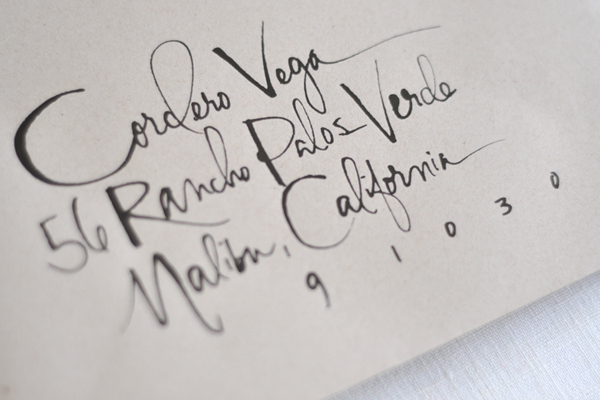 Cordero Vega
56 Rancho Palos Verde
Malibu, California
91030